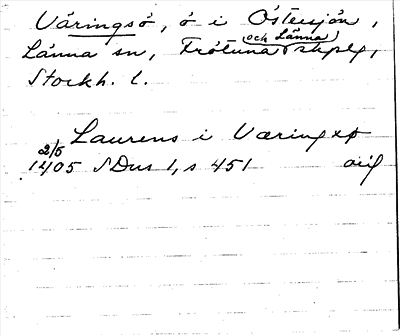 Väringsö, ö i Östersjön,
Länna sn, Frötuna och Länna skplg,
Stockh. l.
Laurens i Væringxø
2/5
1405 SDns 1, s 451 orig